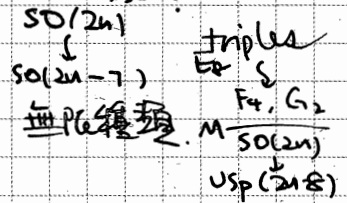 SO(2n)
↓
SO(2n-7)
triples
E8
↓
F4, G2
M
SO(2n)
↓
USp(2n-8)